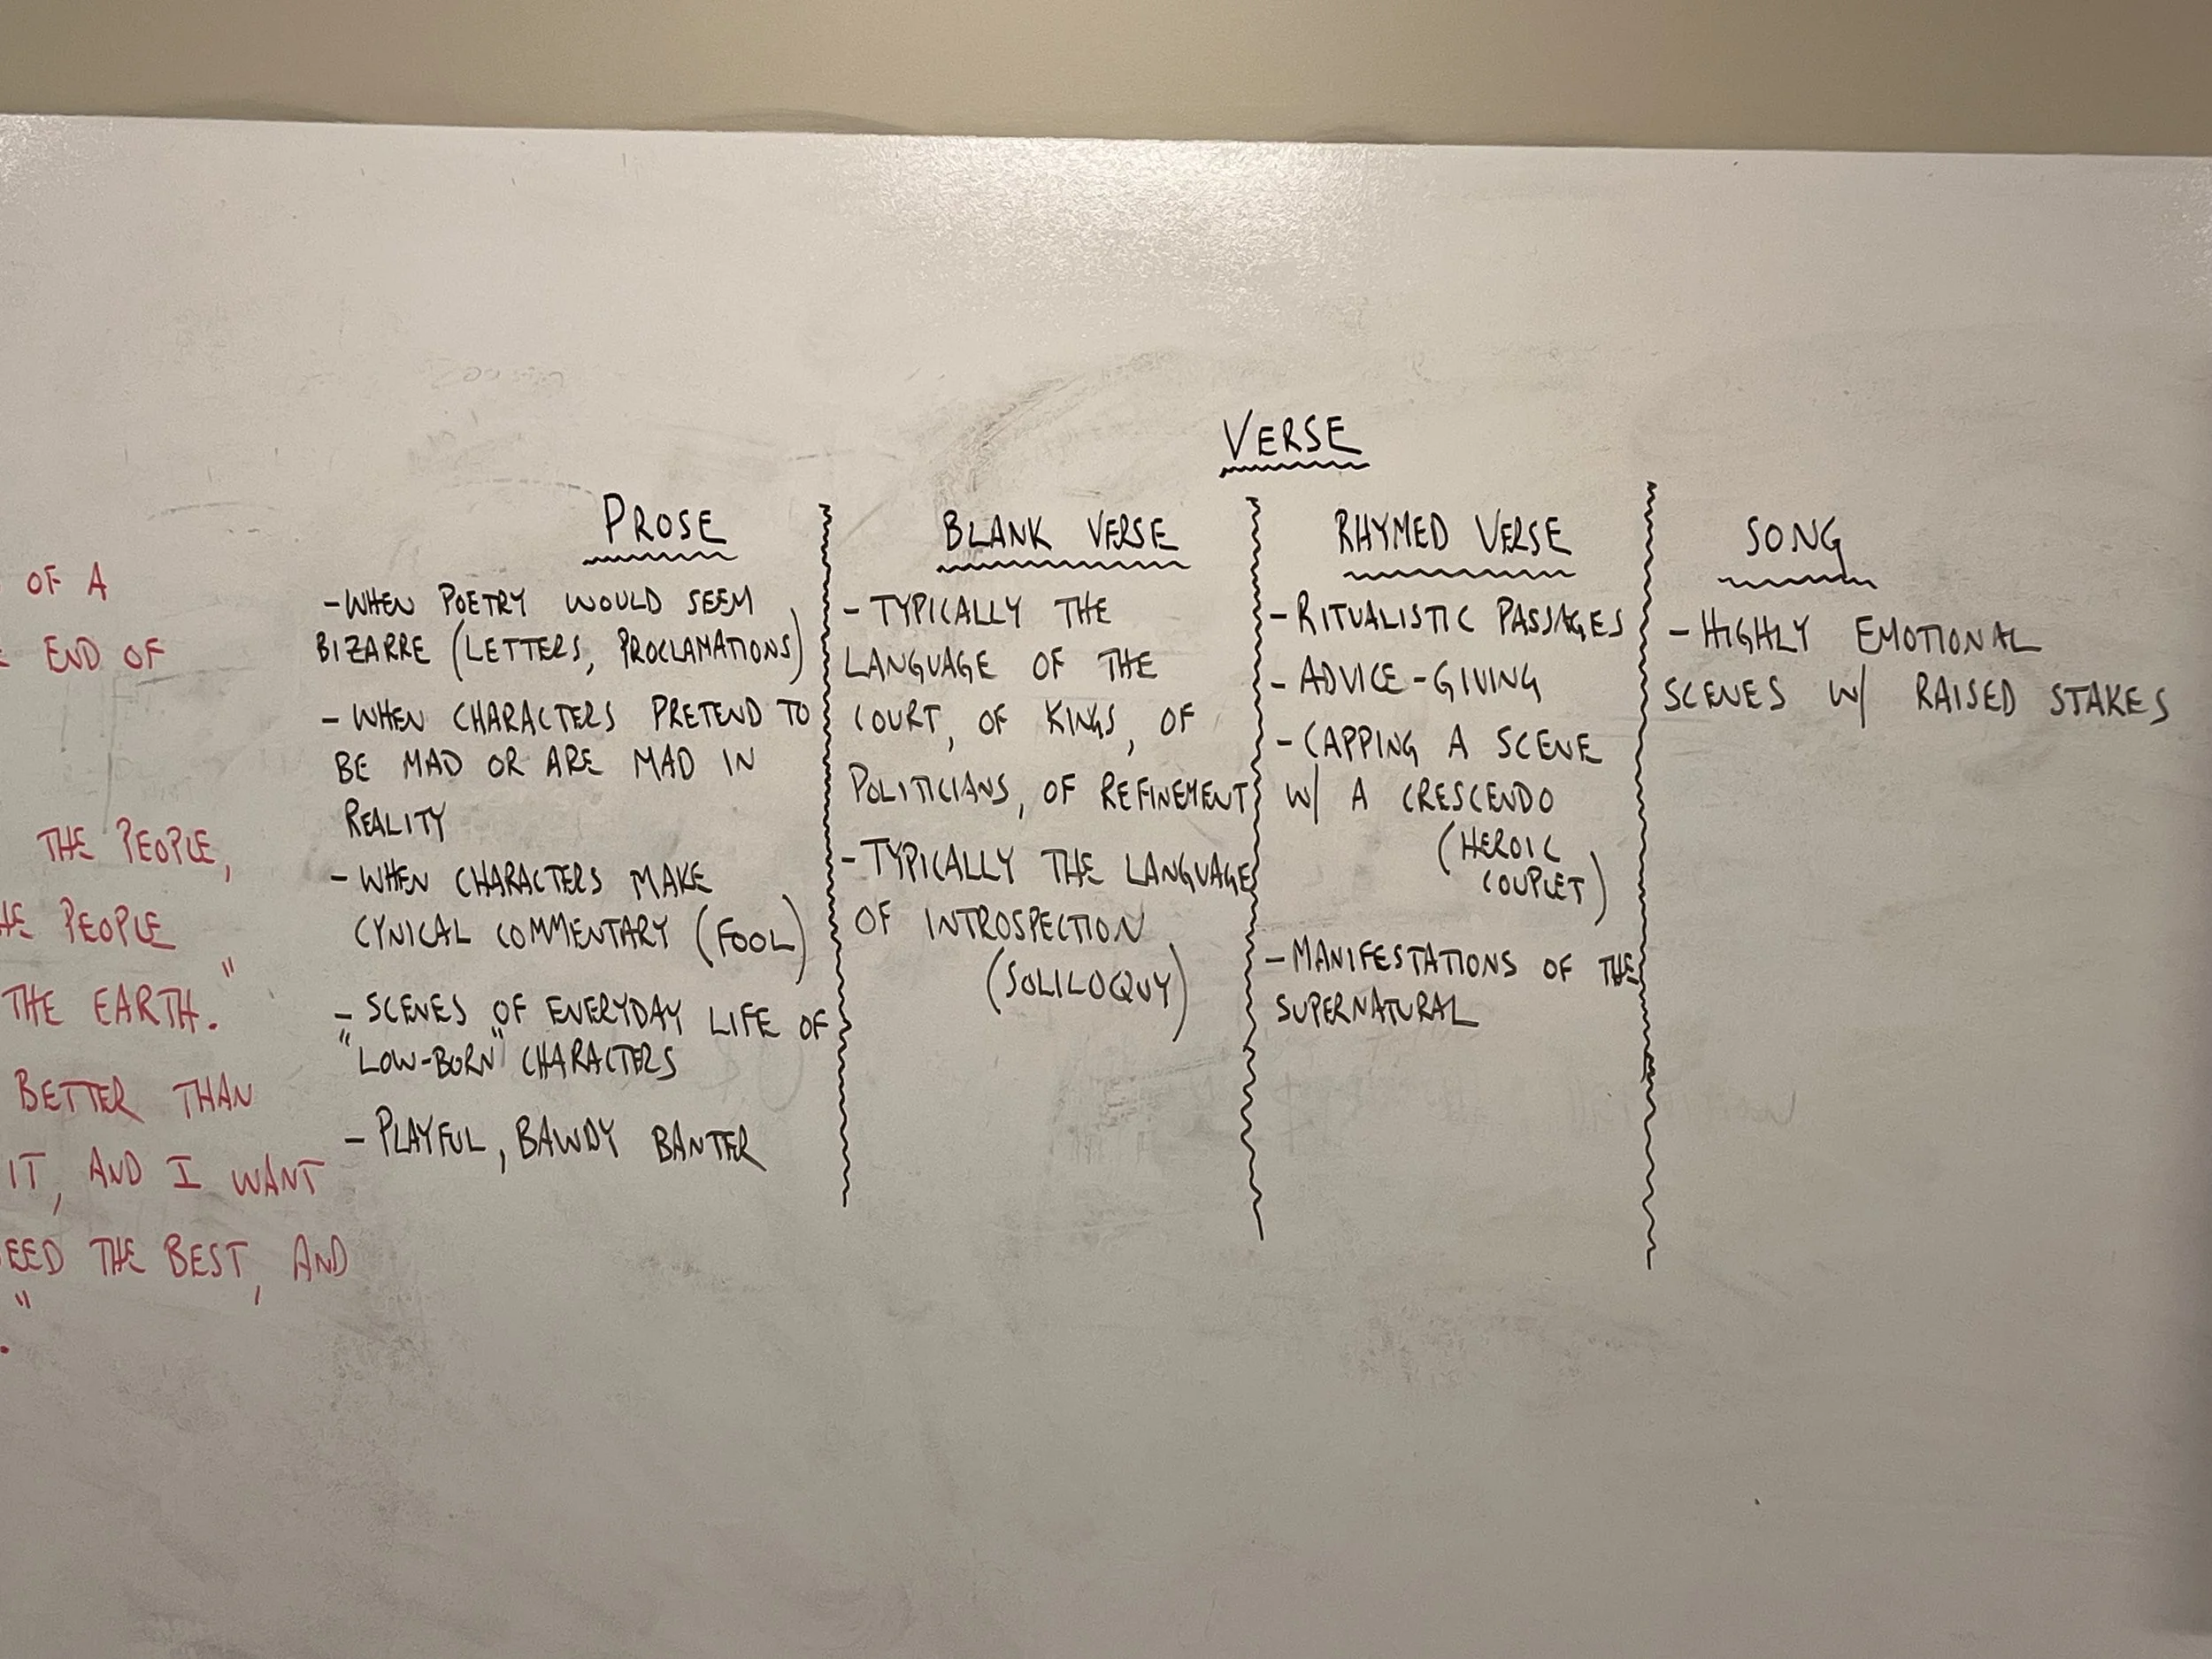 OF A
END OF
THE PEOPLE,
PEOPLE
THE EARTH."
BETTER THAN
IT, AND I WANT
THE BEST, AND
."
VERSE
PROSE
-WHEN POETRY WOULD SEEM
BIZARRE (LETTERS, PROCLAMATIONS)
- WHEN CHARACTERS PRETEND TO
BE MAD OR ARE MAD IN
REALITY
- WHEN CHARACTERS MAKE
CYNICAL COMMENTARY (FOOL)
- SCENES OF EVERYDAY LIFE OF
"LOW-BORN" CHARACTERS
- PLAYFUL, BAWDY BANTER
BLANK VERSE
- TYPICALLY THE
LANGUAGE OF THE
COURT, OF KINGS, OF
POLITICIANS, OF REFINEMENT
- TYPICALLY THE LANGUAGE
OF INTROSPECTION
(SOLILOQUY)
RHYMED VERSE
- RITUALISTIC PASSAGES
- ADVICE-GIVING
- CAPPING A SCENE
W/ A CRESCENDO
(HEROIC
COUPLET)
- MANIFESTATIONS OF THE
SUPERNATURAL
SONG
- HIGHLY EMOTIONAL
SCENES W/ RAISED STAKES